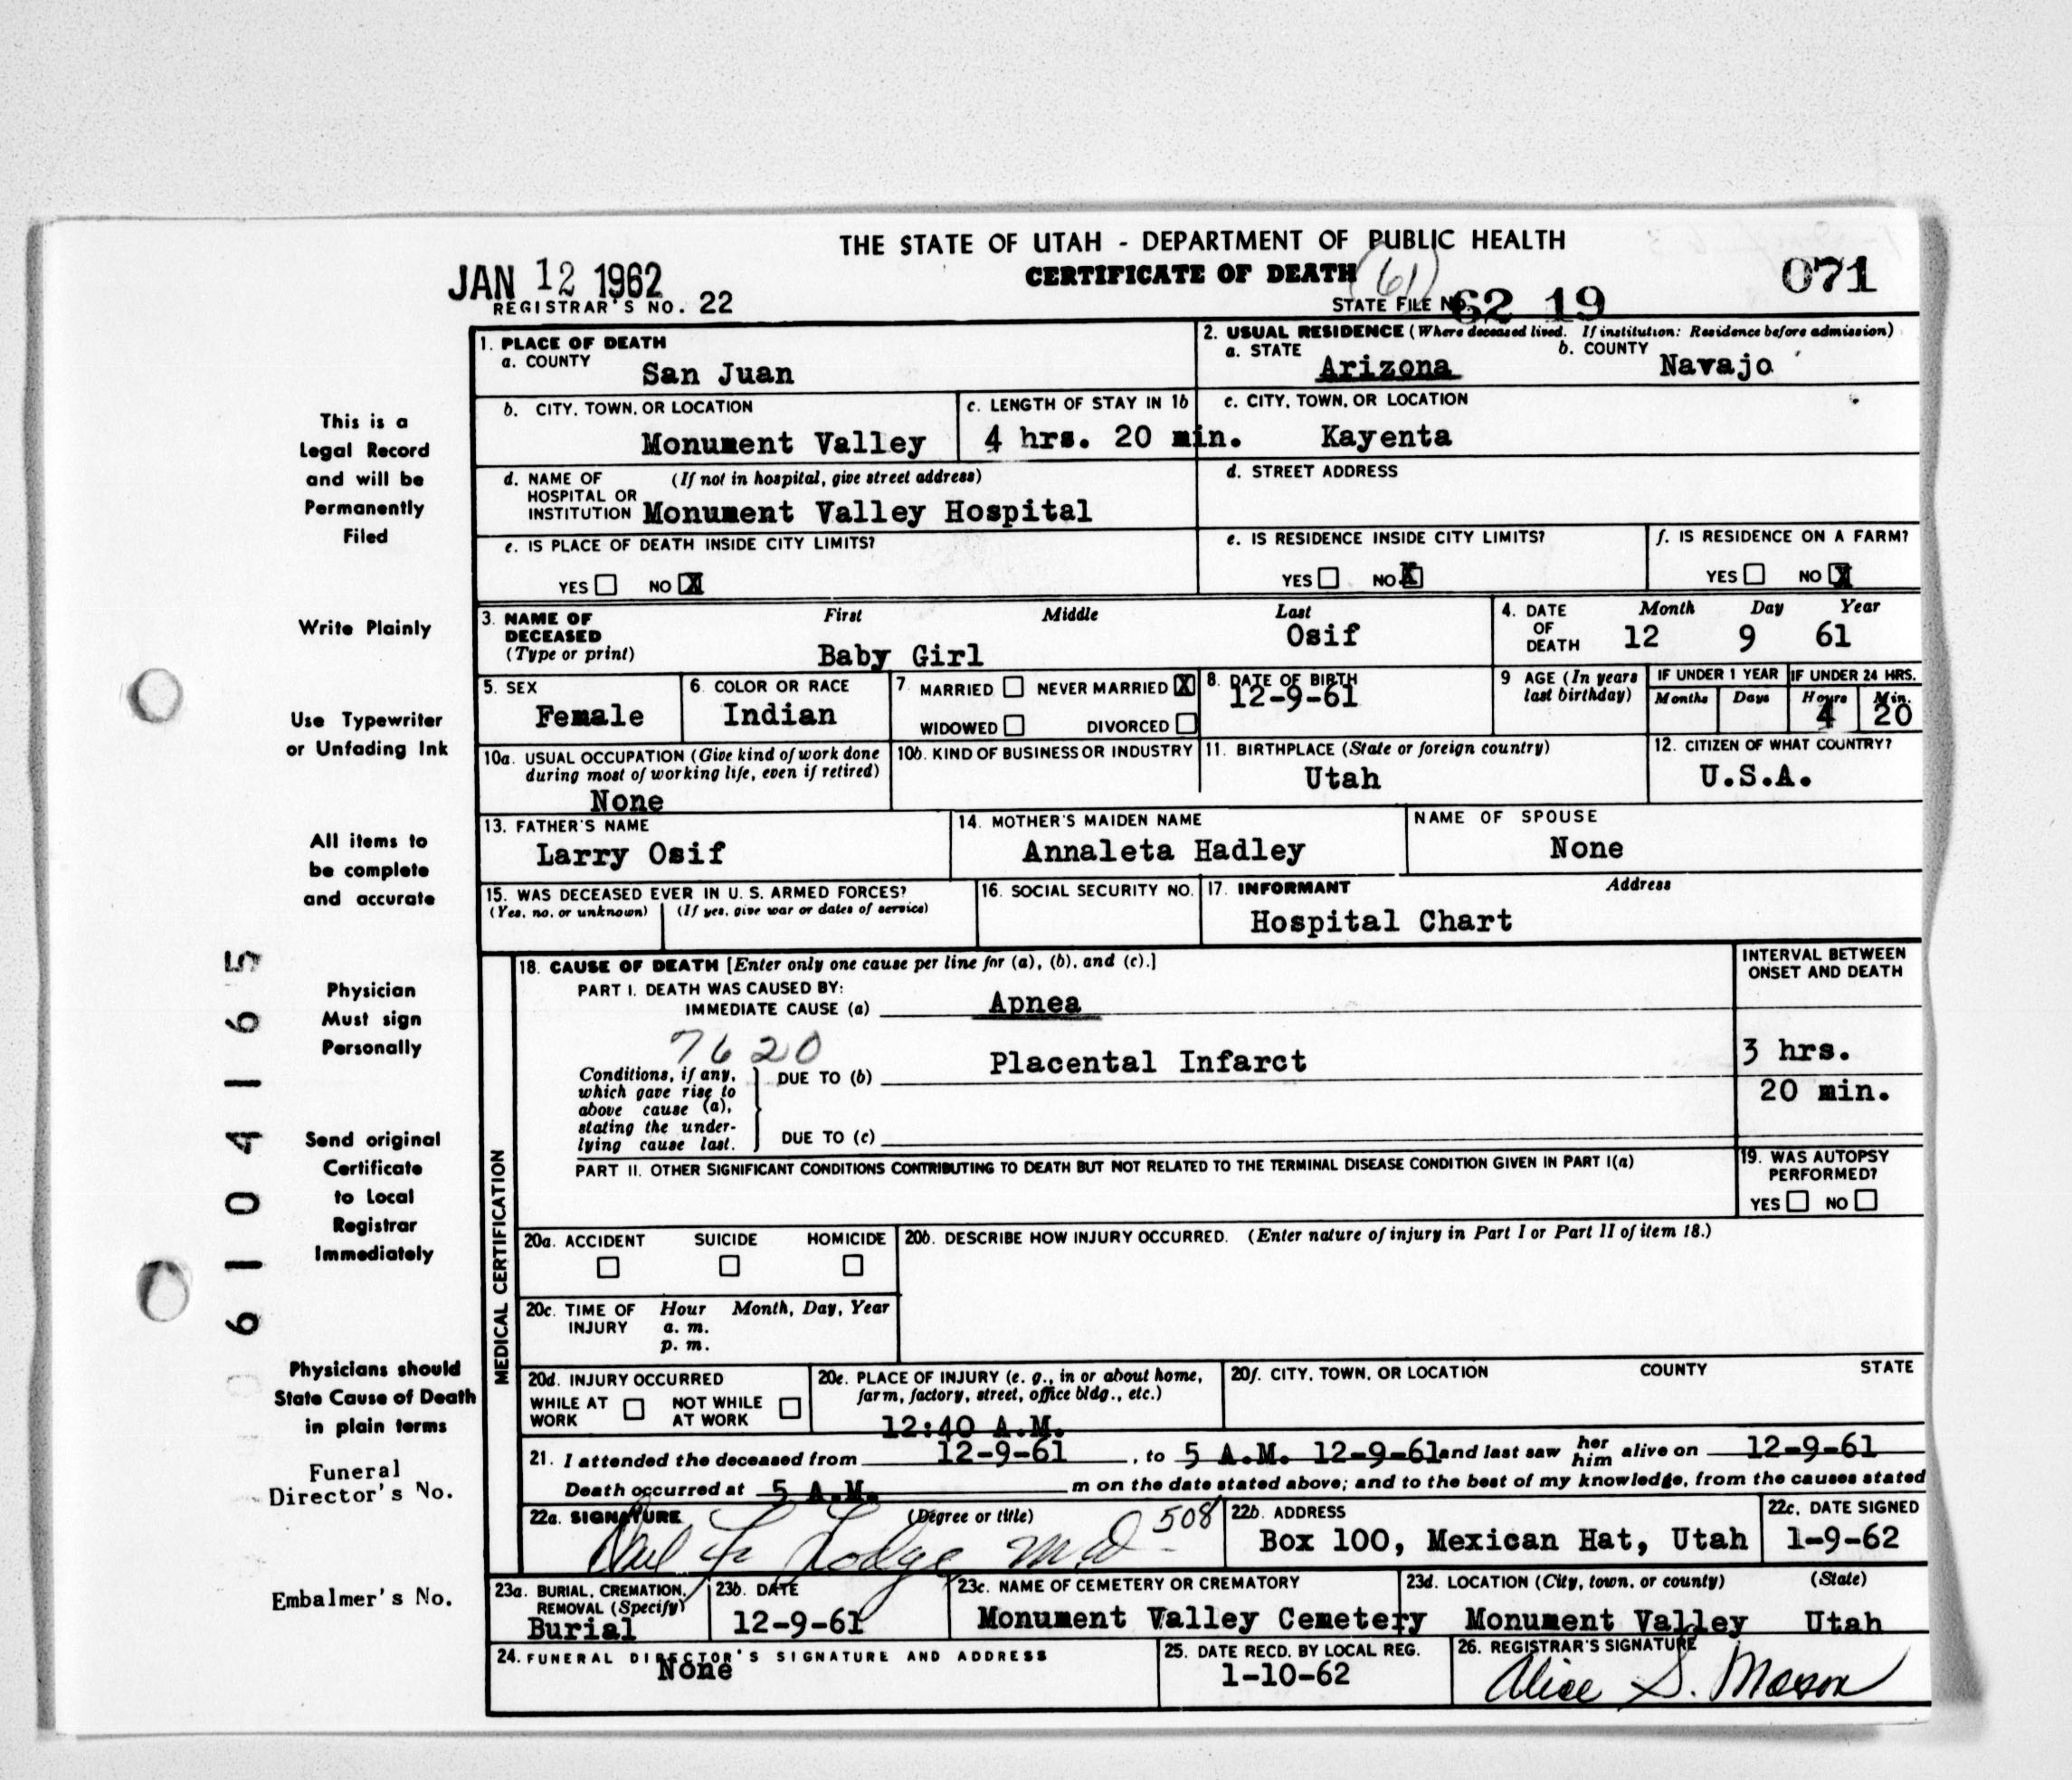 THE STATE OF UTAH - DEPARTMENT OF PUBLIC HEALTH
JAN 12 1962
CERTIFICATE OF DEATH (61)
071
REGISTRAR'S NO. 22
STATE FILE NO. 62 19
This is a
Legal Record
and will be
Permanently
Filed
Write Plainly
Use Typewriter
or Unfading Ink
All items to
be complete
and accurate
Physician
Must sign
Personally
Send original
Certificate
to Local
Registrar
Immediately
Physicians should
State Cause of Death
in plain terms
Funeral
Director's No.
Embalmer's No.
61041165
1. PLACE OF DEATH
a. COUNTY San Juan
2. USUAL RESIDENCE (Where deceased lived. If institution: Residence before admission)
a. STATE Arizona b. COUNTY Navajo
b. CITY, TOWN, OR LOCATION Monument Valley
c. LENGTH OF STAY IN 1b 4 hrs. 20 min.
c. CITY, TOWN, OR LOCATION Kayenta
d. NAME OF HOSPITAL OR INSTITUTION (If not in hospital, give street address) Monument Valley Hospital
d. STREET ADDRESS
e. IS PLACE OF DEATH INSIDE CITY LIMITS?
YES NO X
e. IS RESIDENCE INSIDE CITY LIMITS?
YES NO X
f. IS RESIDENCE ON A FARM?
YES NO X
3. NAME OF DECEASED (Type or print)
First Middle Last
Baby Girl Osif
4. DATE OF DEATH
Month Day Year
12 9 61
5. SEX Female
6. COLOR OR RACE Indian
7. MARRIED NEVER MARRIED X
WIDOWED DIVORCED
8. DATE OF BIRTH 12-9-61
9 AGE (In years last birthday)
IF UNDER 1 YEAR
Months Days
IF UNDER 24 HRS.
Hours Min.
4 20
10a. USUAL OCCUPATION (Give kind of work done during most of working life, even if retired) None
10b. KIND OF BUSINESS OR INDUSTRY
11. BIRTHPLACE (State or foreign country) Utah
12. CITIZEN OF WHAT COUNTRY? U.S.A.
13. FATHER'S NAME Larry Osif
14. MOTHER'S MAIDEN NAME Annaleta Hadley
NAME OF SPOUSE None
15. WAS DECEASED EVER IN U. S. ARMED FORCES?
(Yes, no, or unknown) (If yes, give war or dates of service)
16. SOCIAL SECURITY NO.
17. INFORMANT Address
Hospital Chart
MEDICAL CERTIFICATION
18. CAUSE OF DEATH [Enter only one cause per line for (a), (b), and (c).]
INTERVAL BETWEEN ONSET AND DEATH
PART I. DEATH WAS CAUSED BY:
IMMEDIATE CAUSE (a) Apnea
7620
Conditions, if any, which gave rise to above cause (a), stating the underlying cause last.
DUE TO (b) Placental Infarct
3 hrs.
20 min.
DUE TO (c)
PART II. OTHER SIGNIFICANT CONDITIONS CONTRIBUTING TO DEATH BUT NOT RELATED TO THE TERMINAL DISEASE CONDITION GIVEN IN PART I(a)
19. WAS AUTOPSY PERFORMED?
YES NO
20a. ACCIDENT SUICIDE HOMICIDE
20b. DESCRIBE HOW INJURY OCCURRED. (Enter nature of injury in Part I or Part II of item 18.)
20c. TIME OF INJURY Hour Month, Day, Year
a. m.
p. m.
20d. INJURY OCCURRED
WHILE AT WORK NOT WHILE AT WORK
20e. PLACE OF INJURY (e. g., in or about home, farm, factory, street, office bldg., etc.)
20f. CITY, TOWN, OR LOCATION COUNTY STATE
12:40 A.M.
21. I attended the deceased from 12-9-61, to 5 A.M. 12-9-61 and last saw her him alive on 12-9-61
Death occurred at 5 A.M. m on the date stated above; and to the best of my knowledge, from the causes stated
22a. SIGNATURE (Degree or title)
Lodge MD - 508
22b. ADDRESS Box 100, Mexican Hat, Utah
22c. DATE SIGNED 1-9-62
23a. BURIAL, CREMATION, REMOVAL (Specify) Burial
23b. DATE 12-9-61
23c. NAME OF CEMETERY OR CREMATORY Monument Valley Cemetery
23d. LOCATION (City, town, or county) (State) Monument Valley Utah
24. FUNERAL DIRECTOR'S SIGNATURE AND ADDRESS None
25. DATE RECD. BY LOCAL REG. 1-10-62
26. REGISTRAR'S SIGNATURE Alice S. Mason